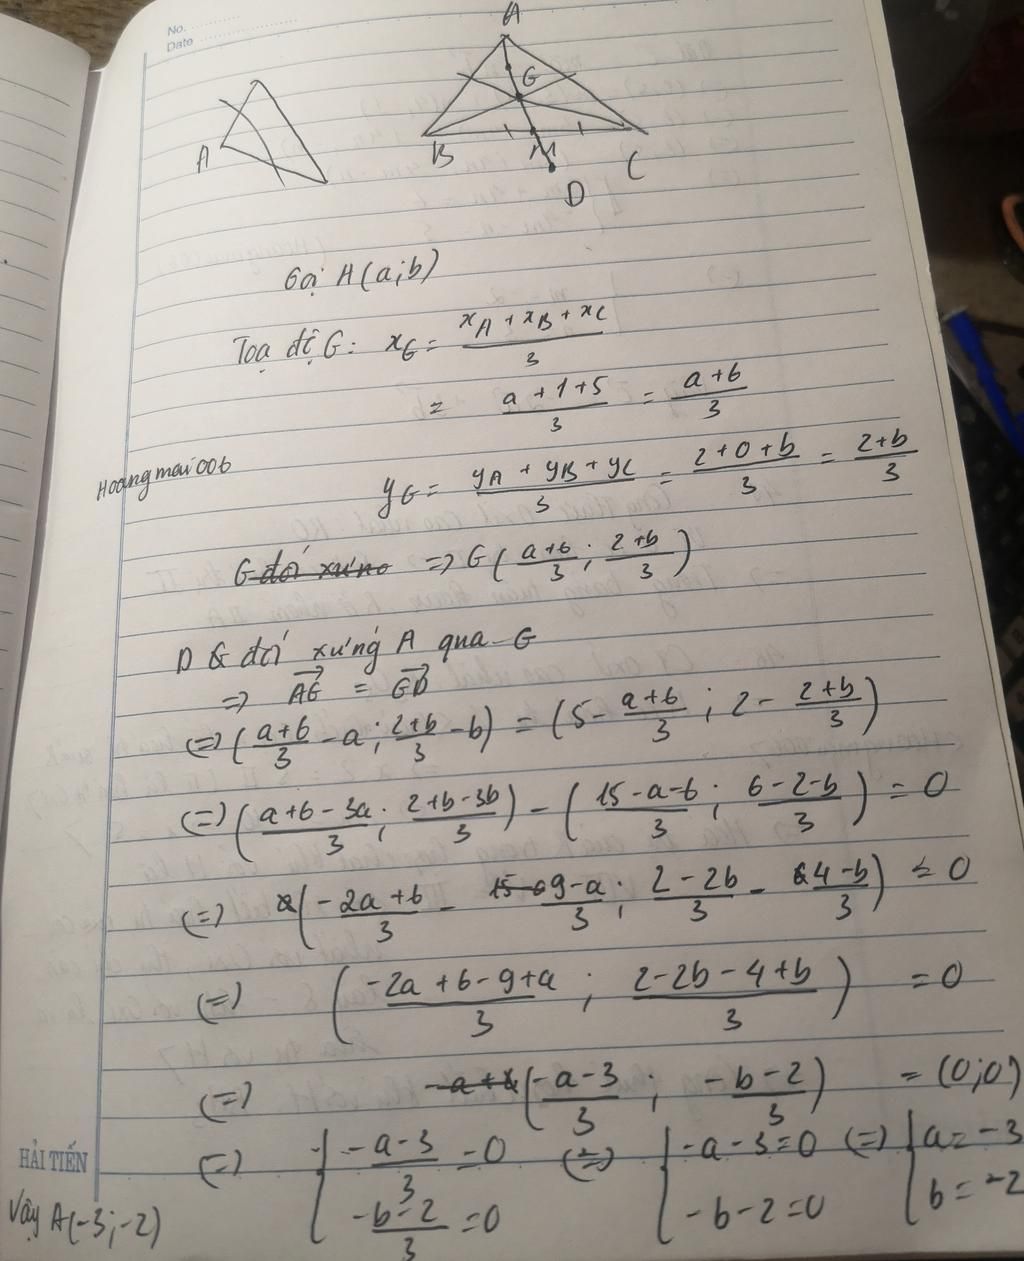 No.
Date
A
A
G
B
M
C
D
Gọi A(a;b)
Toạ độ G: x_G = (x_A + x_B + x_C)/3
= (a+1+5)/3 = (a+6)/3
Hoangmai006
y_G = (y_A + y_B + y_C)/3 = (2+0+b)/3 = (2+b)/3
G đối xứng => G((a+6)/3; (2+b)/3)
D đối xứng A qua G
=> AG→ = GD→
(=) ((a+6)/3 - a; (2+b)/3 - b) = (5 - (a+6)/3; 2 - (2+b)/3)
(=) ((a+6-3a)/3; (2+b-3b)/3) - ((15-a-6)/3; (6-2-b)/3) = 0
(=) ((-2a+6)/3 - (9-a)/3; (2-2b)/3 - (4-b)/3) = 0
(=) ((-2a+6-9+a)/3; (2-2b-4+b)/3) = 0
(=) ((-a-3)/3; (-b-2)/3) = (0;0)
(=) { (-a-3)/3 = 0 (=) { -a-3=0 (=) { a=-3
(-b-2)/3 = 0 -b-2=0 b=-2
HẢI TIẾN
Vậy A(-3;-2)